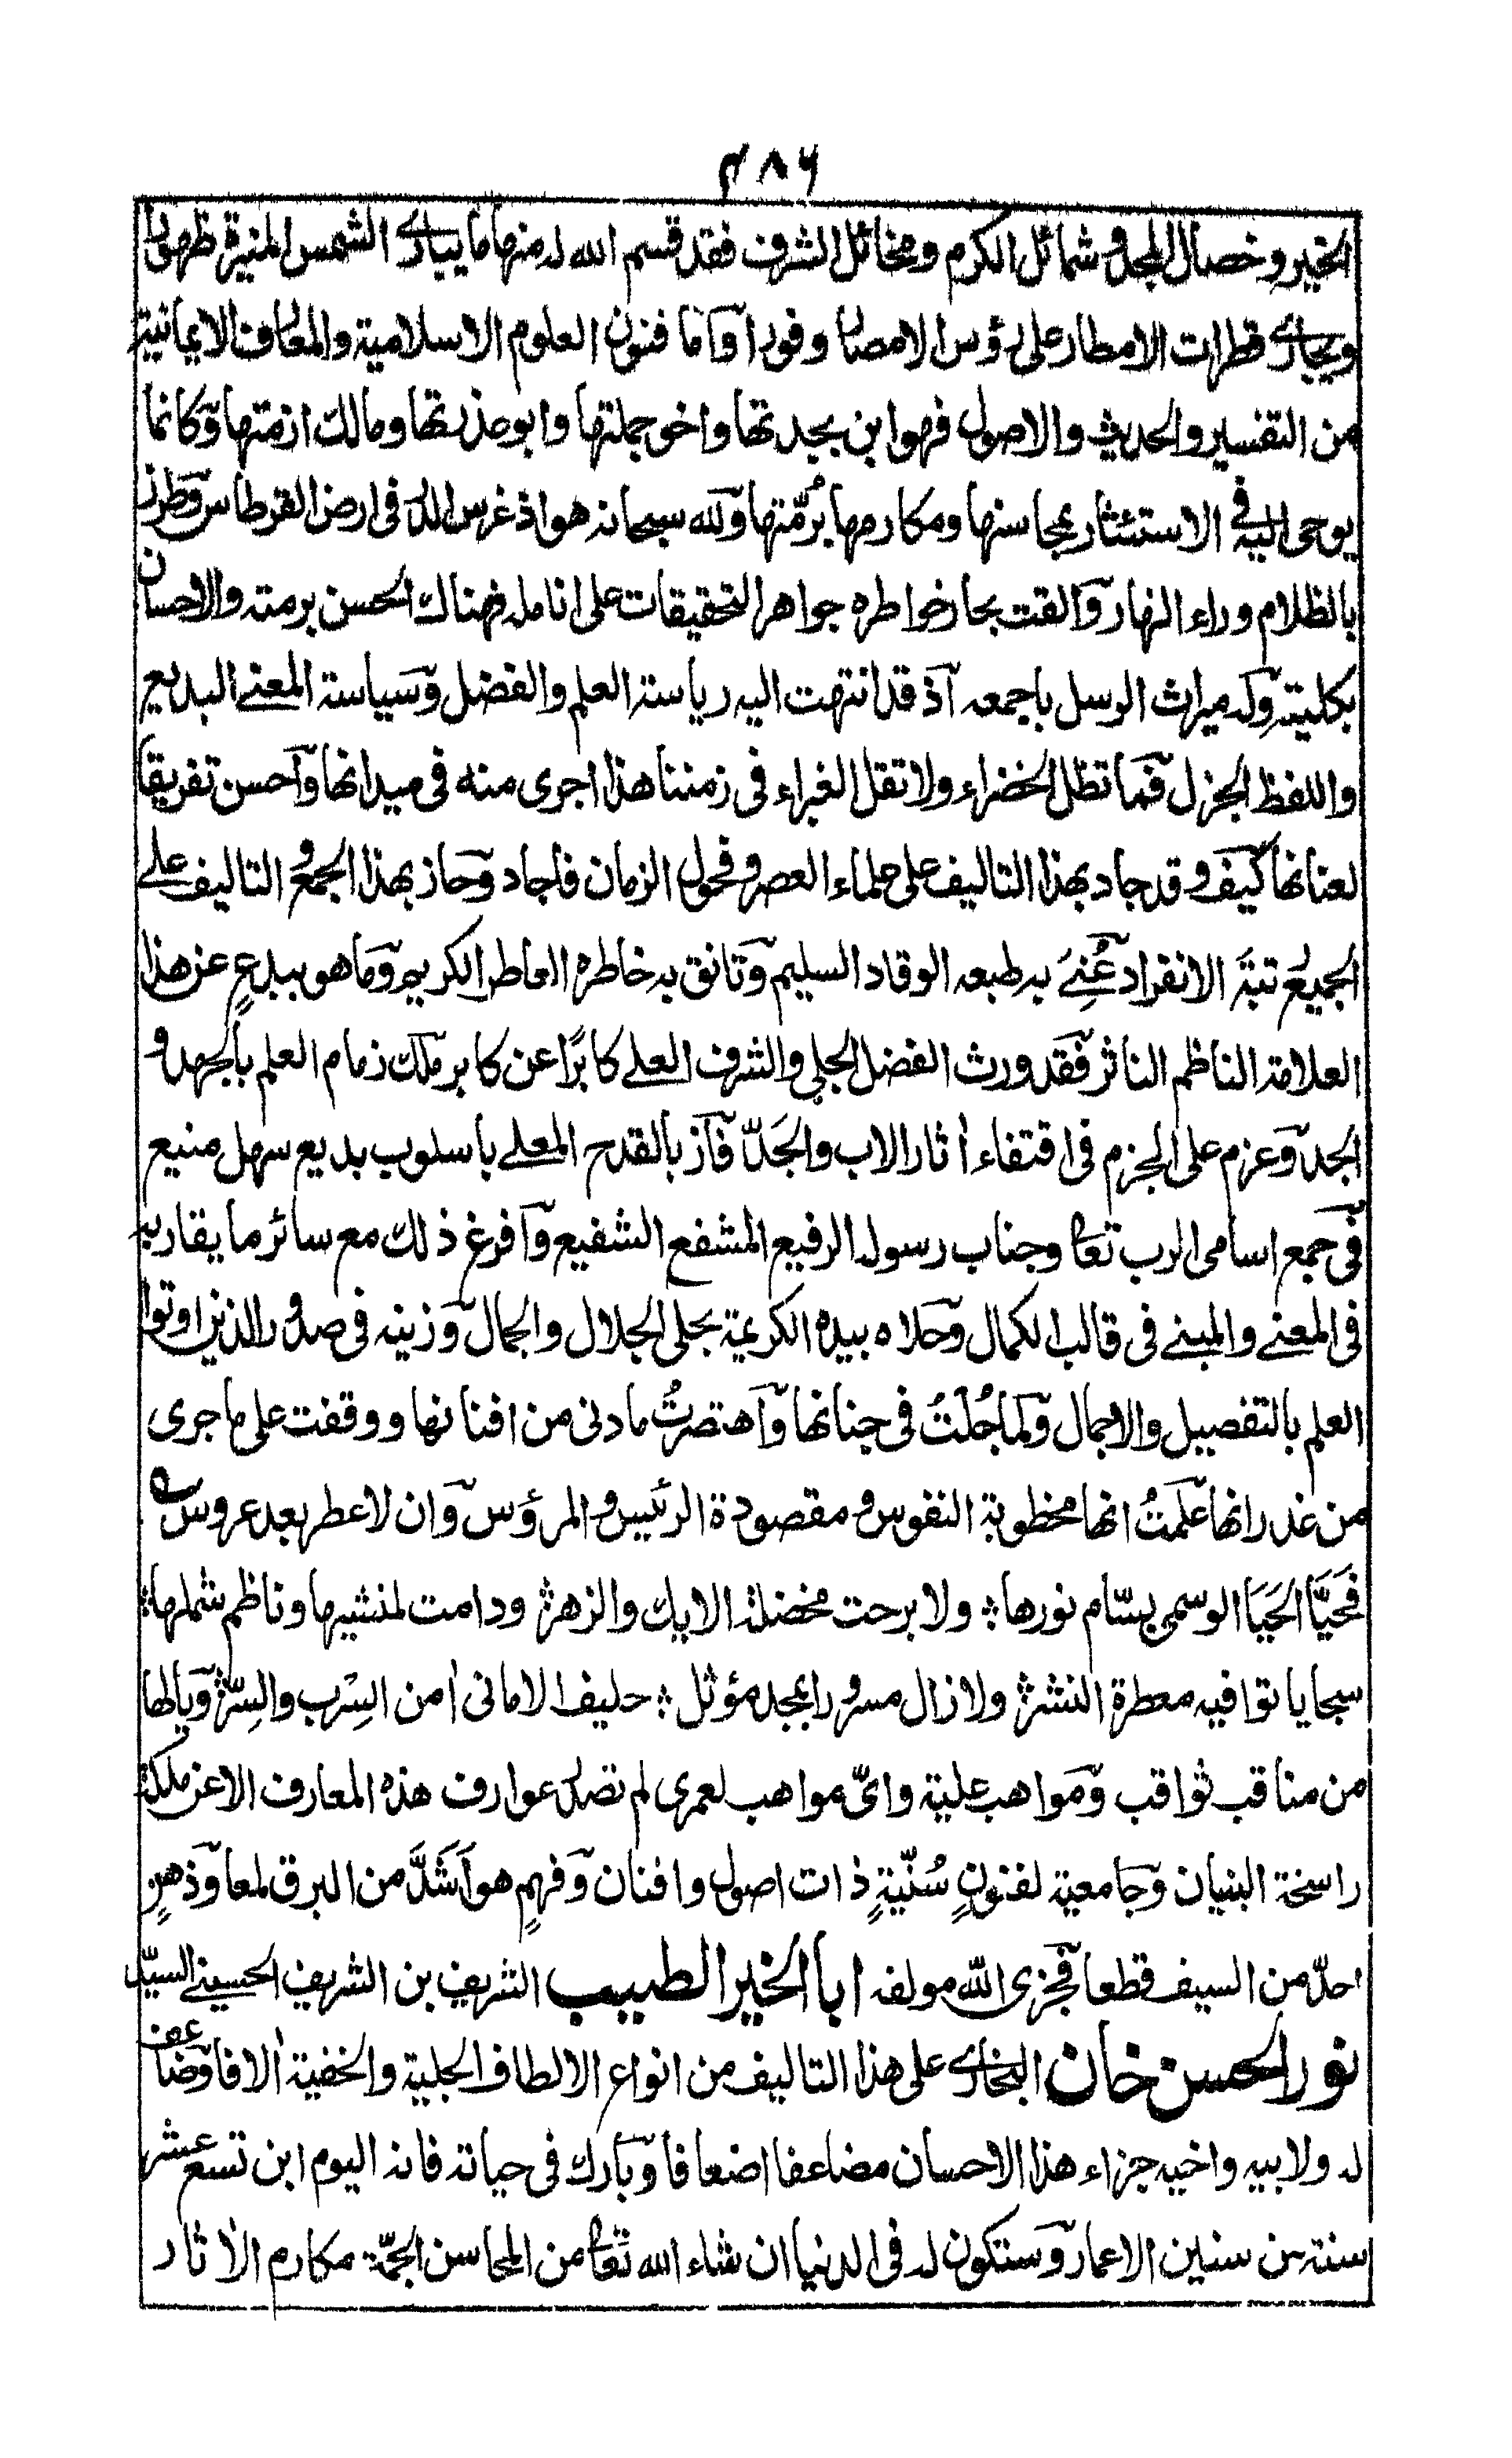 ٤٨٦
الخير وخصال المجد وشمائل الكرم ومخائل الشرف فقد قسم الله له منها ما يباري الشمس المنيرة ظهورا
ويجاري قطرات الامطار على رؤس الامصار وفورا وآما فنون العلوم الاسلامية والمعارف الايمانية
من التفسير والحديث والاصول فهو ابن بجدتها واخو جملتها وابو عذرتها ومالك ازمتها وكانما
يوحى اليه في الاستئثار بمحاسنها ومكارمها برُمّتها ولله سبحانه هو اذ غرس الدر فى ارض القرطاس وطرز
بالظلام وراء النهار وآلقت بحار خواطره جواهر التحقيقات على انامله فهناك الحسن برمته والاحسان
بكليته وله ميراث الرسل باجمعه آذ قد انتهت اليه رياسة العلم والفضل وسياسة المعنے البديع
واللفظ الجزل فما تظل الخضراء ولا تقل الغبراء فى زمننا هذا اجرى منه فى ميدانها وآحسن تفريقا
لعنانها كيف وقد جاد بهذا التاليف على علماء العصر وفحول الزمان فاجاد وحاز بهذا الجمع والتاليف علے
الجميع رتبة الانفراد عُنِىَ به طبعه الوقاد السليم وتانق به خاطره العاطر الكريم وما هو ببدعٍ عن هذا
العلامة الناظم الناثر فقد ورث الفضل الجلي والشرف العلے كابرًا عن كابر ملك زمام العلم بالجهد و
الجد وعزم على الجزم فى اقتفاء اٰثار الاب والجَدّ فآز بالقدح المعلے باسلوب بديع سهل منيع
فى جمع اسامى الرب تعالى وجناب رسوله الرفيع المشفع الشفيع وآفرغ ذلك مع سائر ما يقاربه
فى المعنے والمبنے فى قالب الكمال وحلاه بيده الكريمة بحلى الجلال والجمال وزينه فى صدور الذين اوتوا
العلم بالتفصيل والاجمال ولما جُلْتُ فى جنانها وآهتصرتُ ما دنى من افنانها ووقفت على ما جرى
من غدرانها علمتُ انها مخطوبة النفوس ومقصودة الرئيس والمرؤس وان لا عطر بعد عروس ه
فَحَيَّا الحَيَا الوسمى بسّام نورها ؛ ولا برحت مخضلة الايك والزهر ؛ ودامت لمنشيها وناظم شملها ؛
سجايا توافيه معطرة النشر ؛ ولا زال مسرورا بمجد مؤثل ؛ حليف الامانى اٰمن السِرْب والسِرّ ؛ ويالها
من مناقب ثواقب ومواهب علية واىّ مواهب لعمرى لم تصدر عوارف هذه المعارف الا عن ملكة
راسخة البنيان وجامعية لفنونٍ سُنّيةٍ ذات اصول وافنان وفهمٍ هو آشَدَّ من البرق لمعا وذهنٍ
احدّ من السيف قطعا فجزى الله مولفه ابا الخير الطبيب الشريف بن الشريف الحسينے السيد
نور الحسن خان البخاري على هذا التاليف من انواع الالطاف الجلية والخفية اٰلافا وضاعف
له ولابيه واخيه جزاء هذا الاحسان مضاعفا اضعافا وبارك فى حياته فانه اليوم ابن تسع عشر
سنة من سنين الاعمار وستكون له فى الدنيا ان شاء الله تعالى من المحاسن الجمّة مكارم الاٰثار